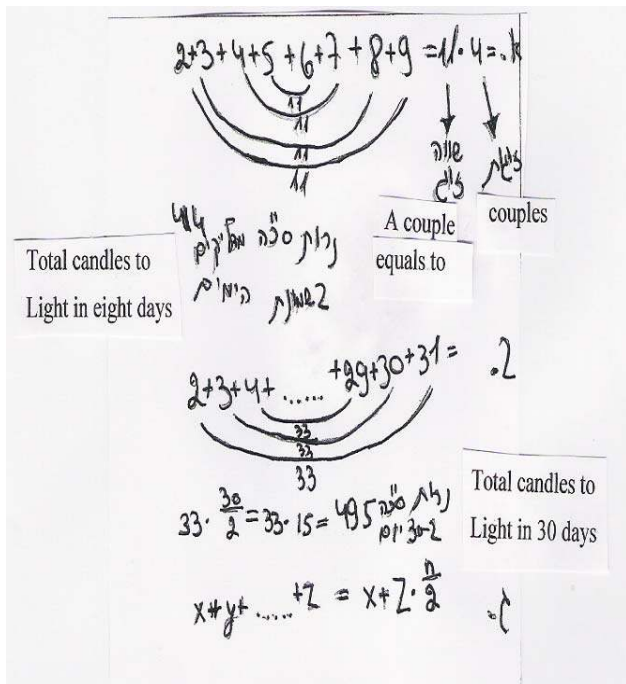 2+3+4+5+6+7+8+9 =11·4= .א
11
11
11
11
שווה
זוג
זוגות
A couple
equals to
couples
44
נרות סה"כ מדליקים
בשמונת הימים
Total candles to
Light in eight days
2+3+4+......+29+30+31= .ב
33
33
33
33·30/2=33·15=495 נרות סה"כ
ב-30 יום
Total candles to
Light in 30 days
x+y+.....+z = x+z·n/2 .ג